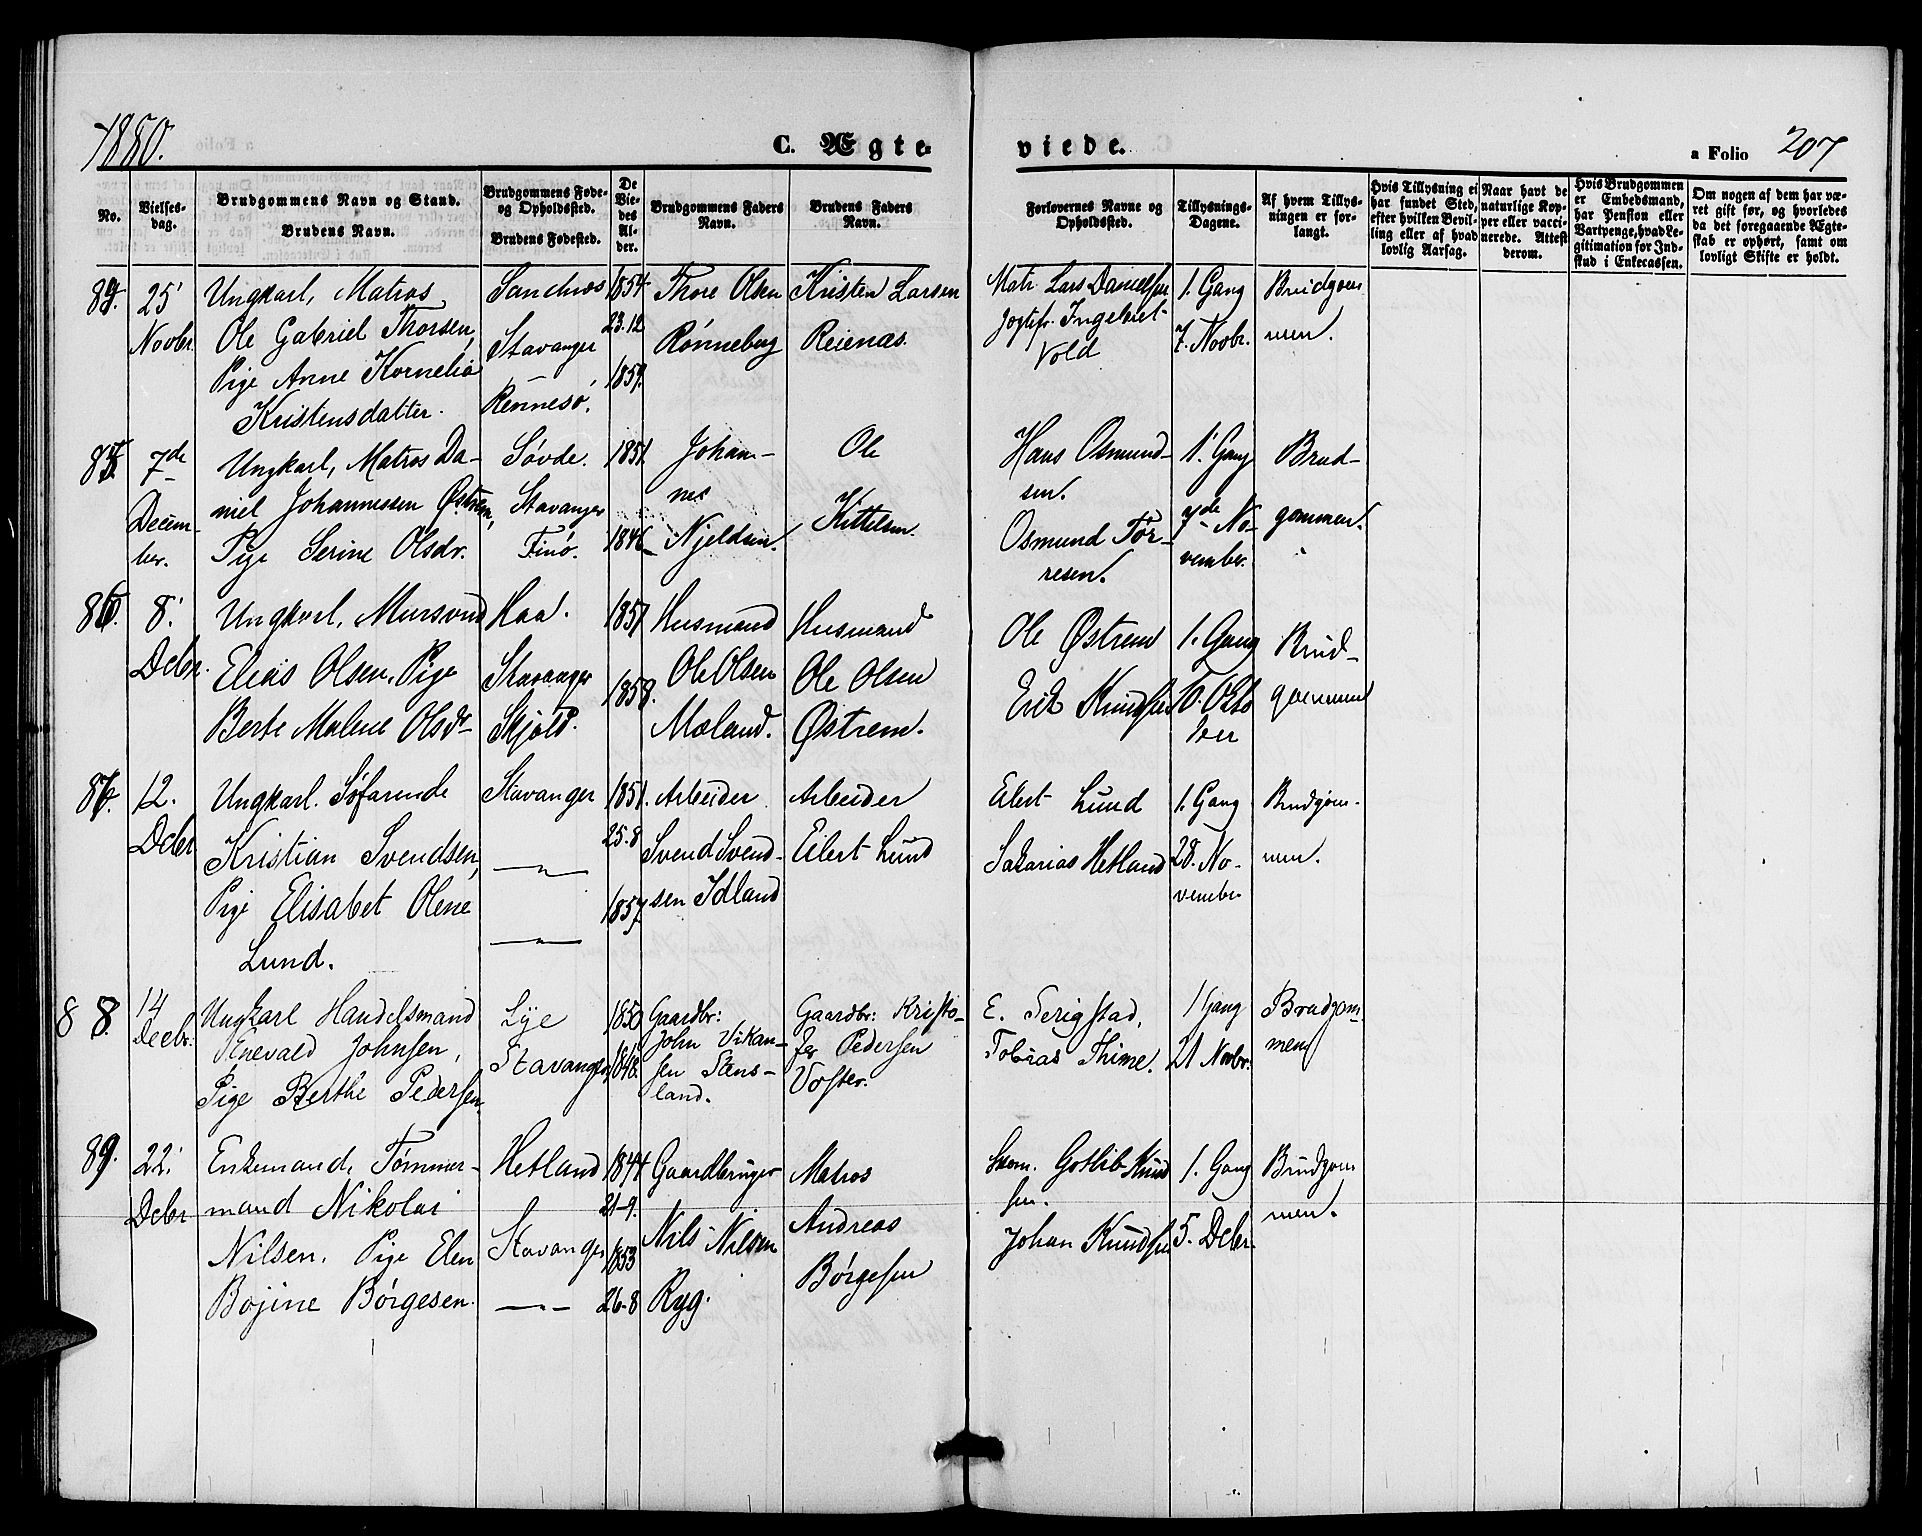 1880.
C. Ægte-
viede.
a Folio 207
No.
Vielses-
dag.
Brudgommens Navn og Stand.
Brudens Navn.
Brudgommens Føde-
og Opholdssted.
Brudens Fødested.
De
Vie-
des
Al-
der.
Brudgommens Faders
Navn.
Brudens Faders
Navn.
Forlovernes Navne og
Opholdssted.
Tillysnings-
Dagene.
Af hvem Tillys-
ningen er for-
langt.
Hvis Tillysning ei
har fundet Sted,
efter hvilken Bevil-
ling eller af hvad
lovlig Aarsag.
Naar havt de
naturlige Kop-
per eller vacci-
nerede. Attest
derom.
Hvis Brudgommen
er Embedsmand,
har Pension eller
Vartpenge, hvad Le-
gitimation for Ind-
skud i Enkecassen.
Om nogen af dem har væ-
ret gift før, og hvorledes
da det foregaaende Ægte-
skab er ophørt, samt om
lovligt Skifte er holdt.
25'
Novbr
Ungkarl, Matros
Ole Gabriel Thorsen,
Pige Anne Kornelia
Kristensdatter.
Stavanger
Rennesø.
1854
23.12
1859.
Thore Olsen
Rønneberg
Kristen Larsen
Reienæs.
Matr. Lars Danielsen
Ingebret
Vold
1. Gang
7. Novbr.
Brudgom
men.
85.
7de
Decem-
ber.
Ungkarl, Matros Da-
niel Johannessen Østrem,
Pige Serine Olsdr.
Søvde.
Stavanger
Finø.
1851.
1846
Johan-
nes
Njeldsen.
Ole
Kittelsen
Hans Osmund-
sen.
Osmund Tor-
resen.
1. Gang
7de No-
vember.
Brud-
gommen.
86.
8.
Debr.
Ungkarl, Mursvend
Elias Olsen, Pige
Berte Malene Olsdr
Haa.
Stavanger
Skjold.
1857.
1858.
Husmand
Ole Olsen
Maland.
Husmand
Ole Olsen
Østrem.
Ole Østrem
Erik Knudsen
1. Gang
10. Okto
ber
Brud-
gommen
87.
12.
Debr
Ungkarl. Søfarende
Kristian Svendsen,
Pige Elisabet Olene
Lund.
Stavanger
—"—
—"—
1851.
25.8
1857
Arbeider
Svend Svend-
sen Idland
Arbeider
Eilert Lund
Eilert Lund
Sakarias Hetland
1. Gang
28. No-
vember
Brudgom-
men.
88.
14
Decbr.
Ungkarl Handelsmand
Enevald Johnsen,
Pige Berthe Pedersen
Lye
Stavanger
1850
1848.
Gaardbr:
John Vikan-
sen
land.
Gaardbr: Kristo-
fer Pedersen
E. Serigstad,
Tobias Thime.
1 Gang
21 Novbr.
Brudgom
men
89.
22.
Debr
Enkemand, Tømmer-
mand Nikolai
Nilsen. Pige Elen
Bojine Børgesen.
Hetland
Stavanger
— —
1844
21-9.
1853
26-8
Gaardbruger
Nils Nilsen
Ryg.
Matros
Andreas
Børgesen
Gotlib Knud
sen.
Johan Knudsen
1. Gang
5. Debr.
Brudgom
men.